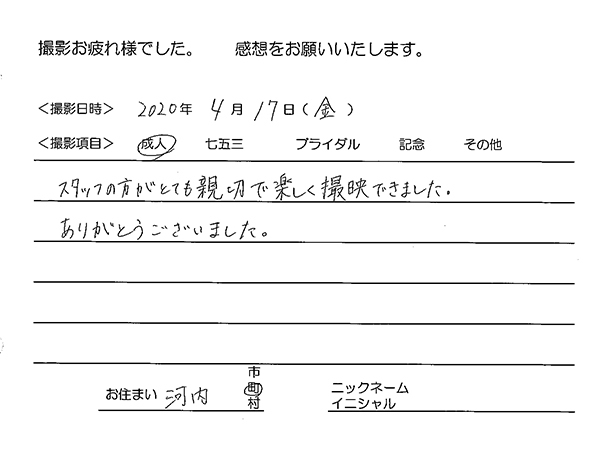 撮影お疲れ様でした。 感想をお願いいたします。
＜撮影日時＞ 2020年 4月17日(金)
＜撮影項目＞ 成人 七五三 ブライダル 記念 その他
スタッフの方がとても親切で楽しく撮映できました。
ありがとうございました。
お住まい 河内 市町村 ニックネーム イニシャル